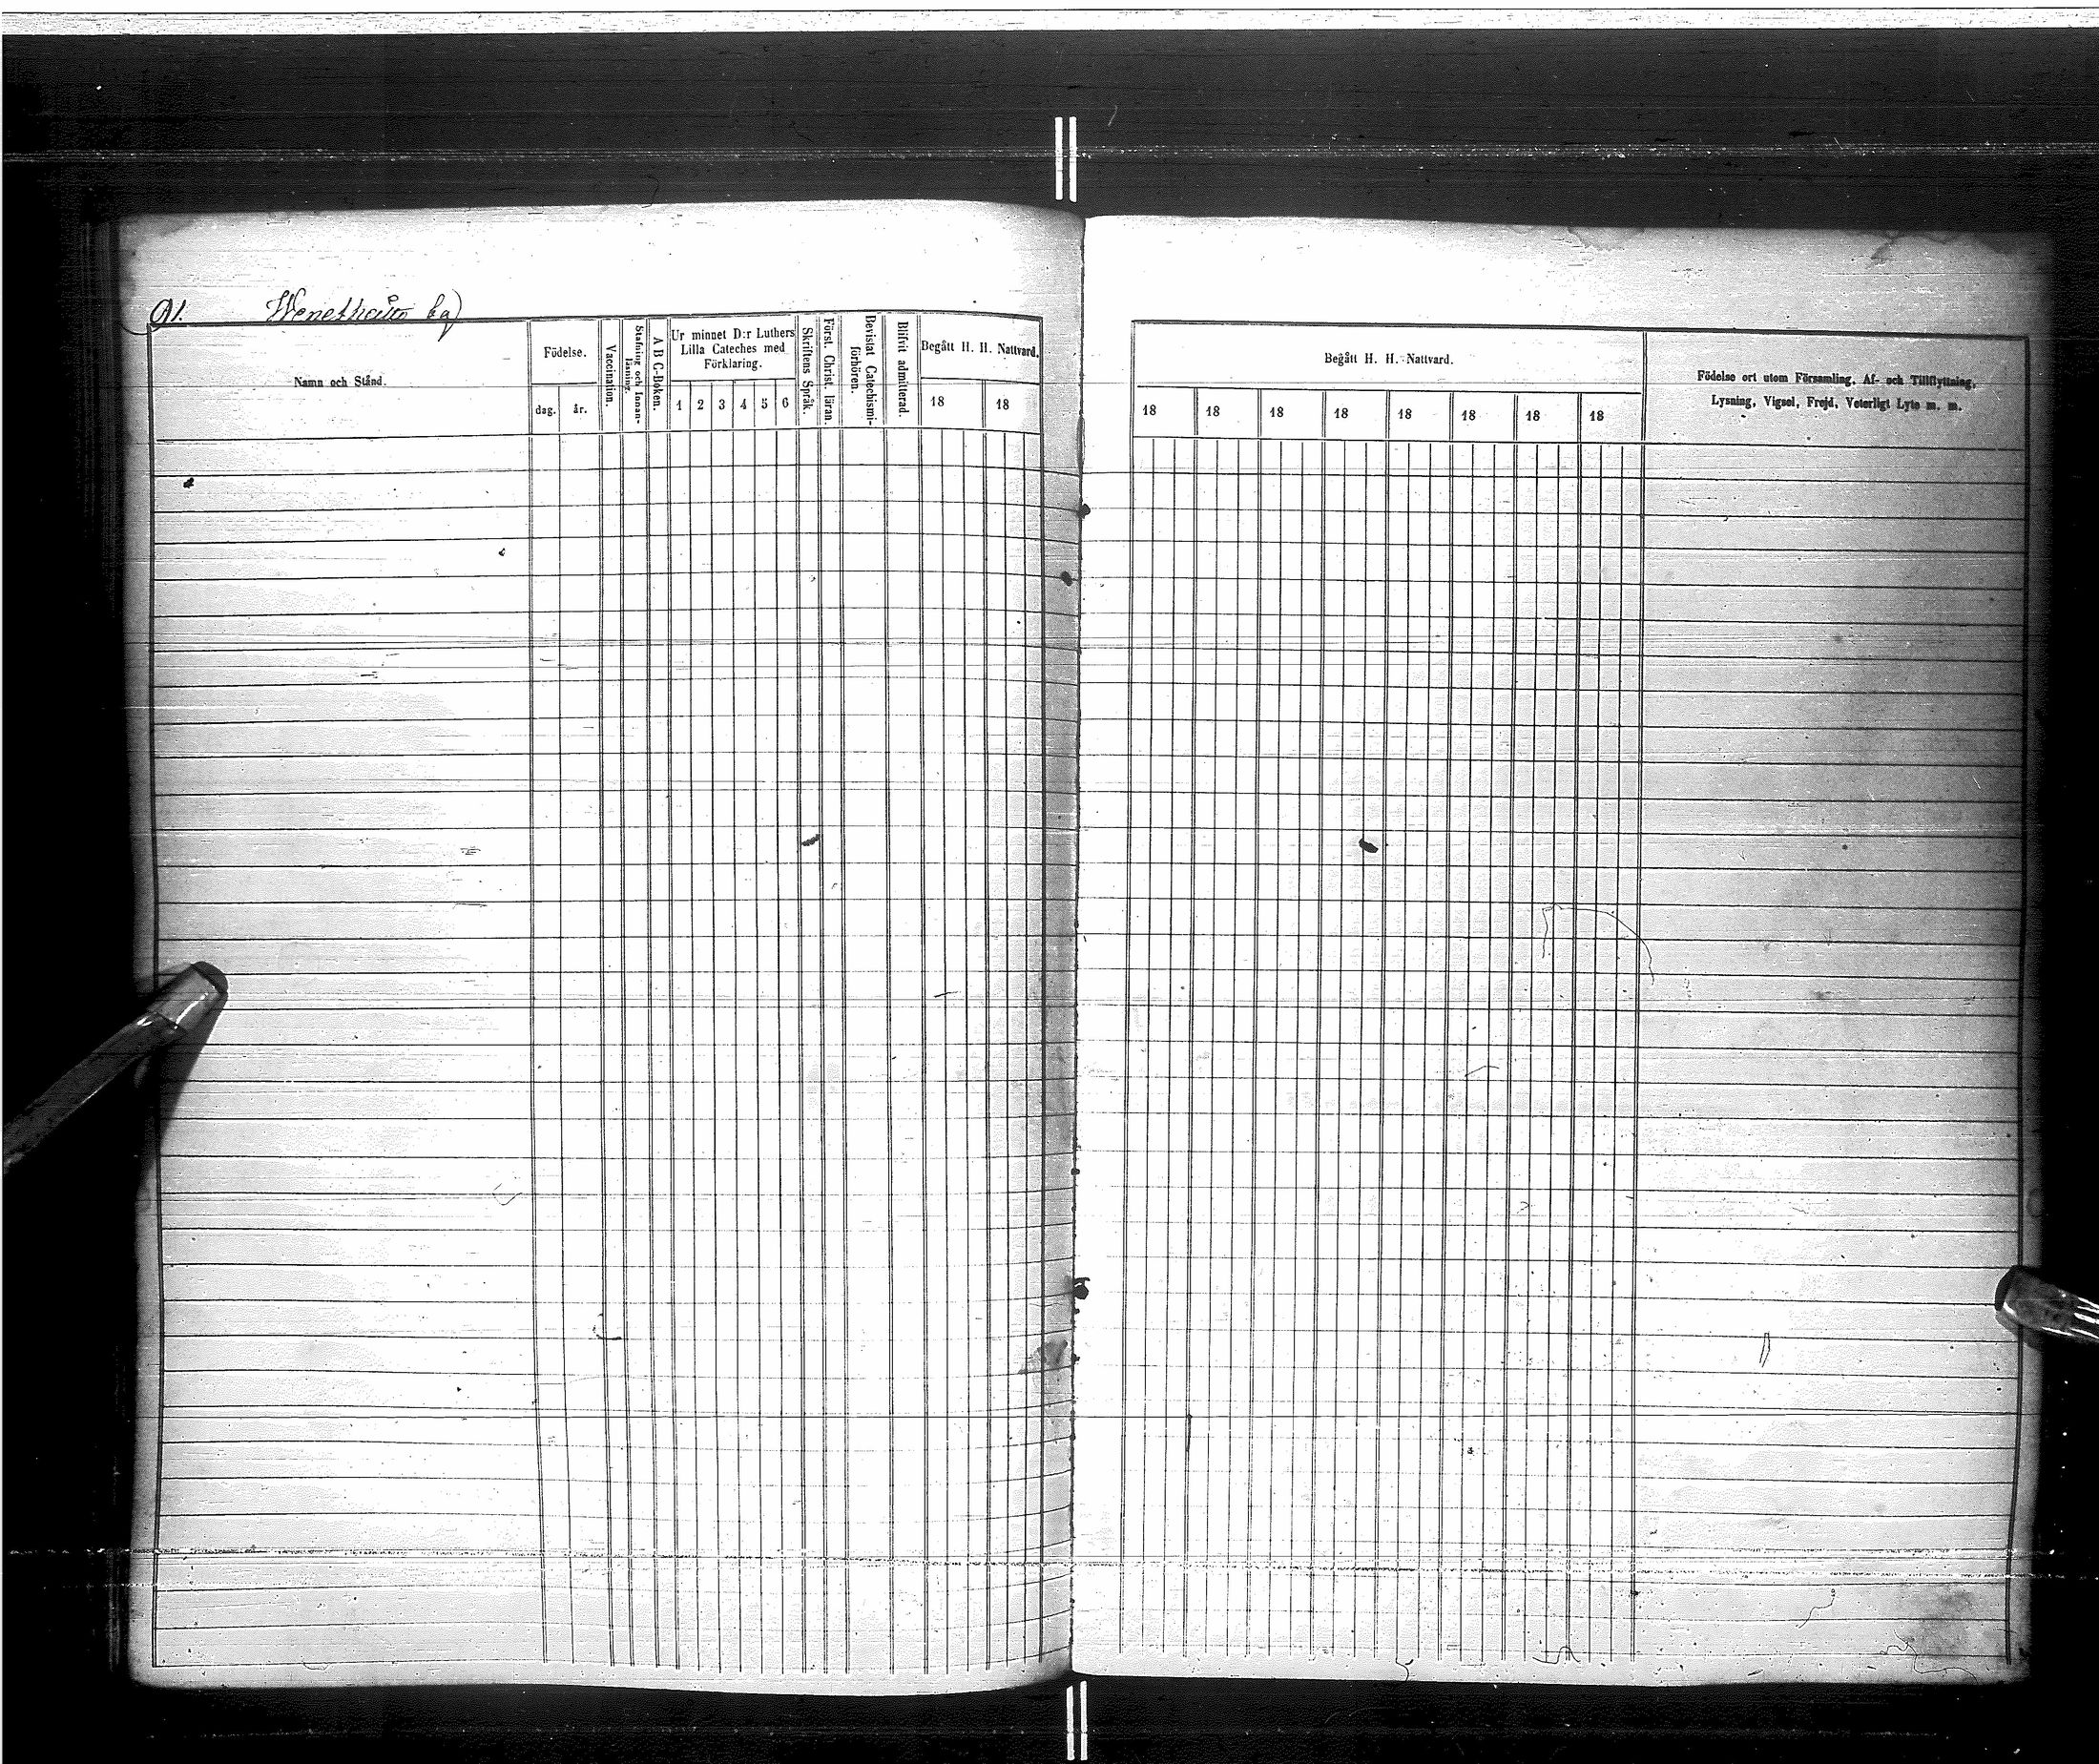 91.
Namn och Stånd.
Födelse.
dag. år.
Vaccination.
Stafning och Innan-
läsning.
A B C-Boken.
Ur minnet D:r Luthers
Lilla Cateches med
Förklaring.
1 2 3 4 5 6
Skriftens Språk.
Först. Christ. läran.
Bevistat Catechismi-
förhören.
Blifvit admitterad.
Begått H. H. Nattvard.
18 18
Begått H. H. Nattvard.
18 18 18 18 18 18 18 18
Födelse ort utom Församling, Af- och Tillflyttning,
Lysning, Vigsel, Frejd, Veterligt Lyte m. m.